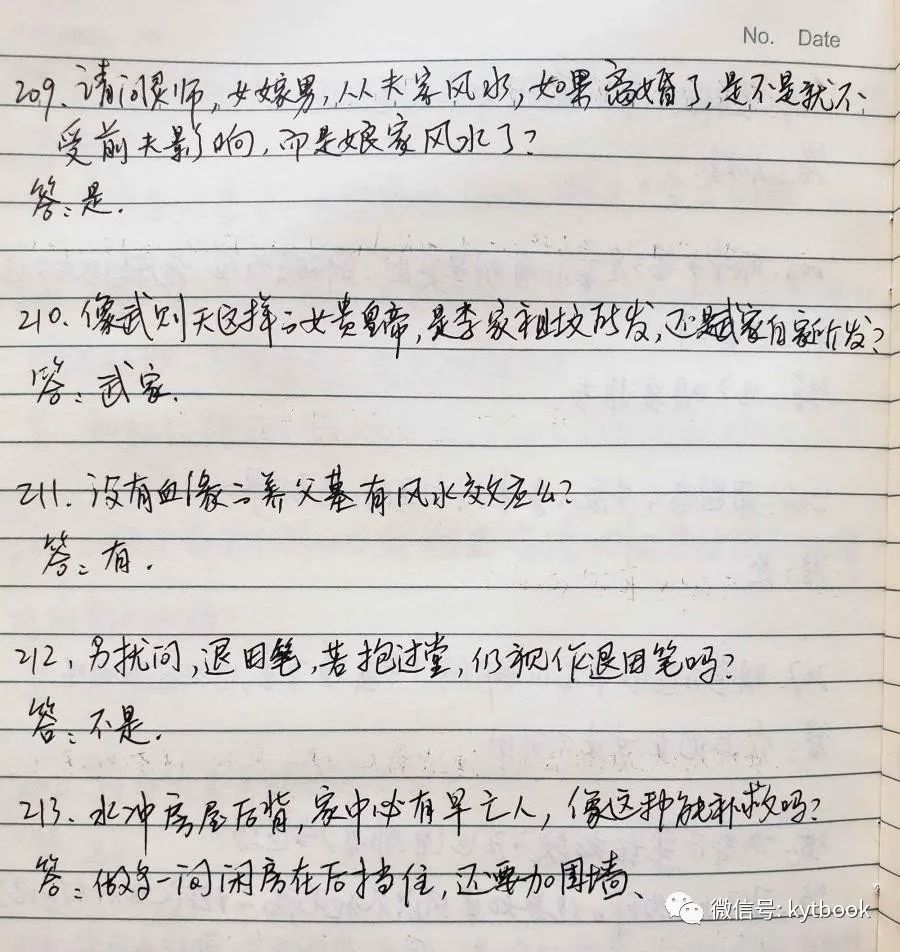 No. Date
209. 请问灵师, 女嫁男, 从夫家风水, 如果离婚了, 是不是就不
受前夫影响, 而是娘家风水了?
答: 是.
210. 像武则天这样的女贵皇帝, 是李家祖坟所发, 还是武家自家所发?
答: 武家.
211. 没有血缘的养父墓有风水效应么?
答: 有.
212. 另扰问, 退田笔, 若抱过堂, 仍视作退田笔吗?
答: 不是.
213. 水冲房屋后背, 家中必有早亡人, 像这种能补救吗?
答: 做多一间闲房在后挡住, 还要加围墙、
微信号: kytbook